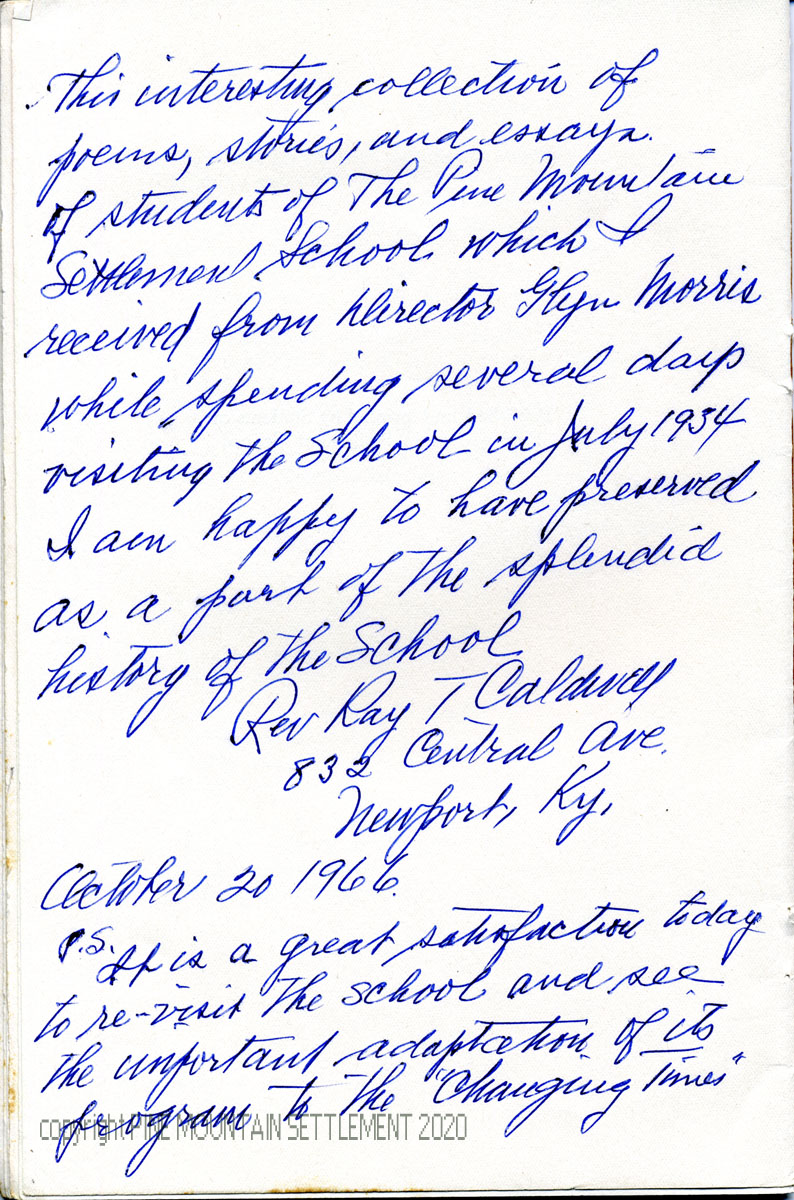 This interesting collection of
poems, stories, and essays.
of students of The Pine Mountain
Settlement School which I
received from Director Glyn Morris
while spending several days
visiting the School in July 1934
I am happy to have preserved
as a part of the splendid
history of the School
Rev Ray T Caldwell
832 Central Ave.
Newport, Ky,
October 20 1966.
P.S. It is a great satisfaction today
to re-visit the School and see
the important adaptation of its
program to the "Changing Times"
copyright PINE MOUNTAIN SETTLEMENT 2020